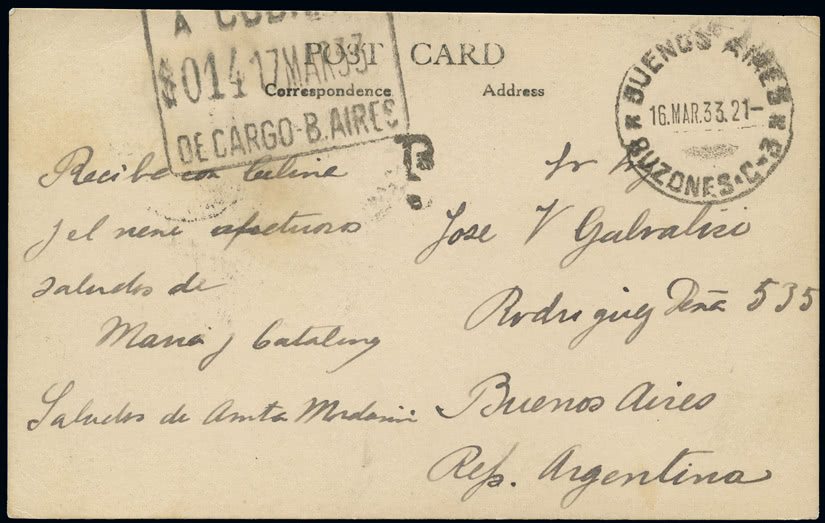 A COBR
$014 17 MAR 33
DE CARGO-B.AIRES
POST CARD
Correspondence
Address
BUENOS AIRES
16.MAR.33.21-
BUZONES-C-3
T
Recibe con Celina
y el nene afectuosos
saludos de
Maria y Catalina
Saludos de Anita
Sr
Jose V Galvalisi
Rodriguez Peña 535
Buenos Aires
Rep. Argentina